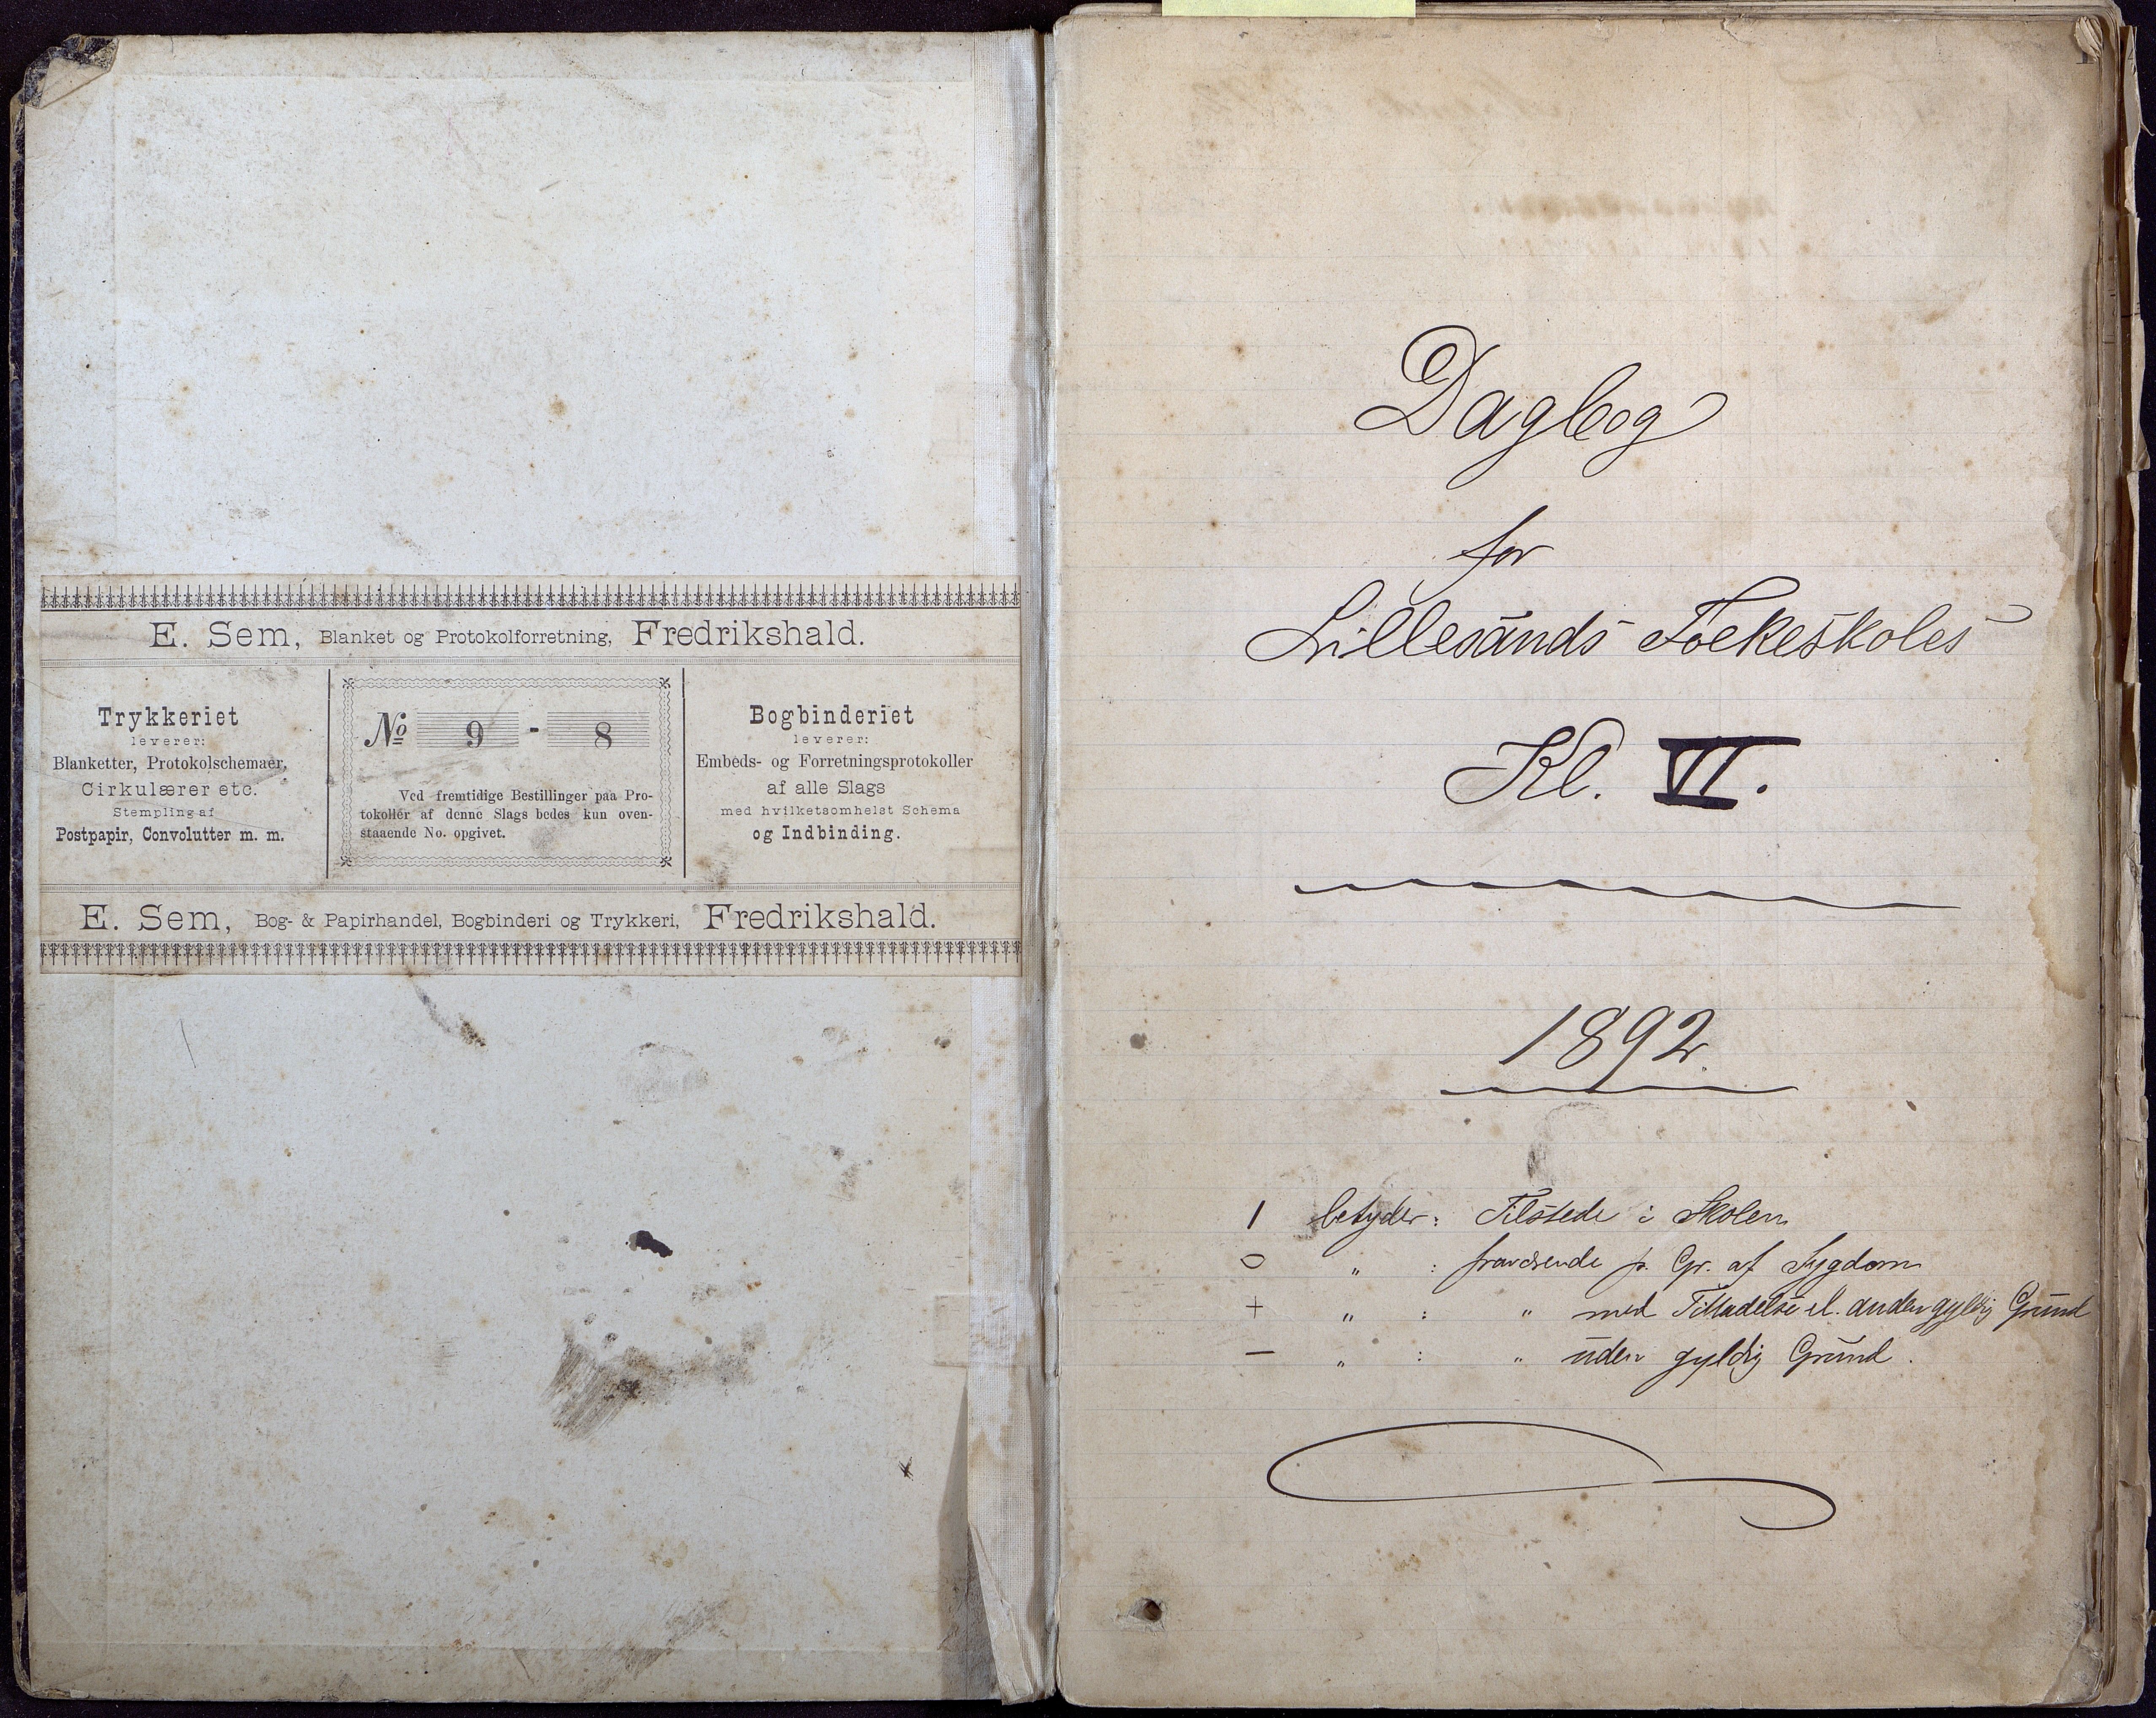 E. Sem, Blanket og Protokolforretning, Fredrikshald.
Trykkeriet
leverer:
Blanketter, Protokolschemaer,
Cirkulærer etc.
Stempling af
Postpapir, Convolutter m. m.
No 9 - 8
Ved fremtidige Bestillinger paa Pro-
tokoller af denne Slags bedes kun oven-
staaende No. opgivet.
Bogbinderiet
leverer:
Embeds- og Forretningsprotokoller
af alle Slags
med hvilketsomhelst Schema
og Indbinding.
E. Sem, Bog- & Papirhandel, Bogbinderi og Trykkeri, Fredrikshald.
Dagbog
for
Lillesands Folkeskoles
Kl. VI.
1892.
1 betyder: Tilstede i Skolen
0 " : fraværende p. Gr. af Sygdom
+ " : " med Tilladelse el. anden gyldig Grund
— " : " uden gyldig Grund.